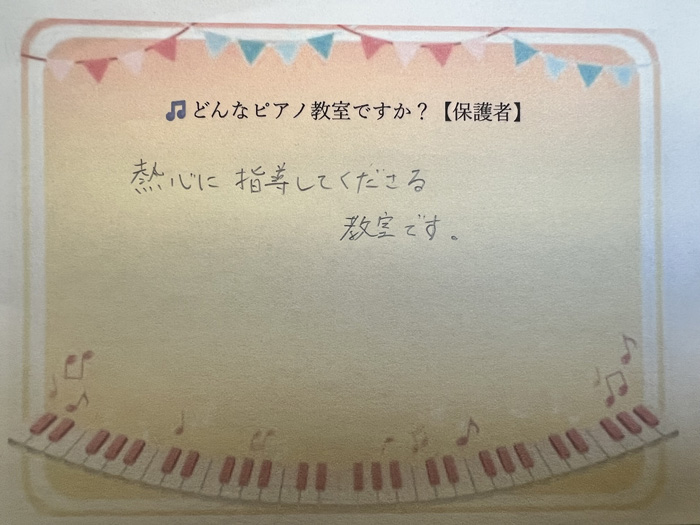 🎵どんなピアノ教室ですか？【保護者】
熱心に 指導してくださる
教室です。